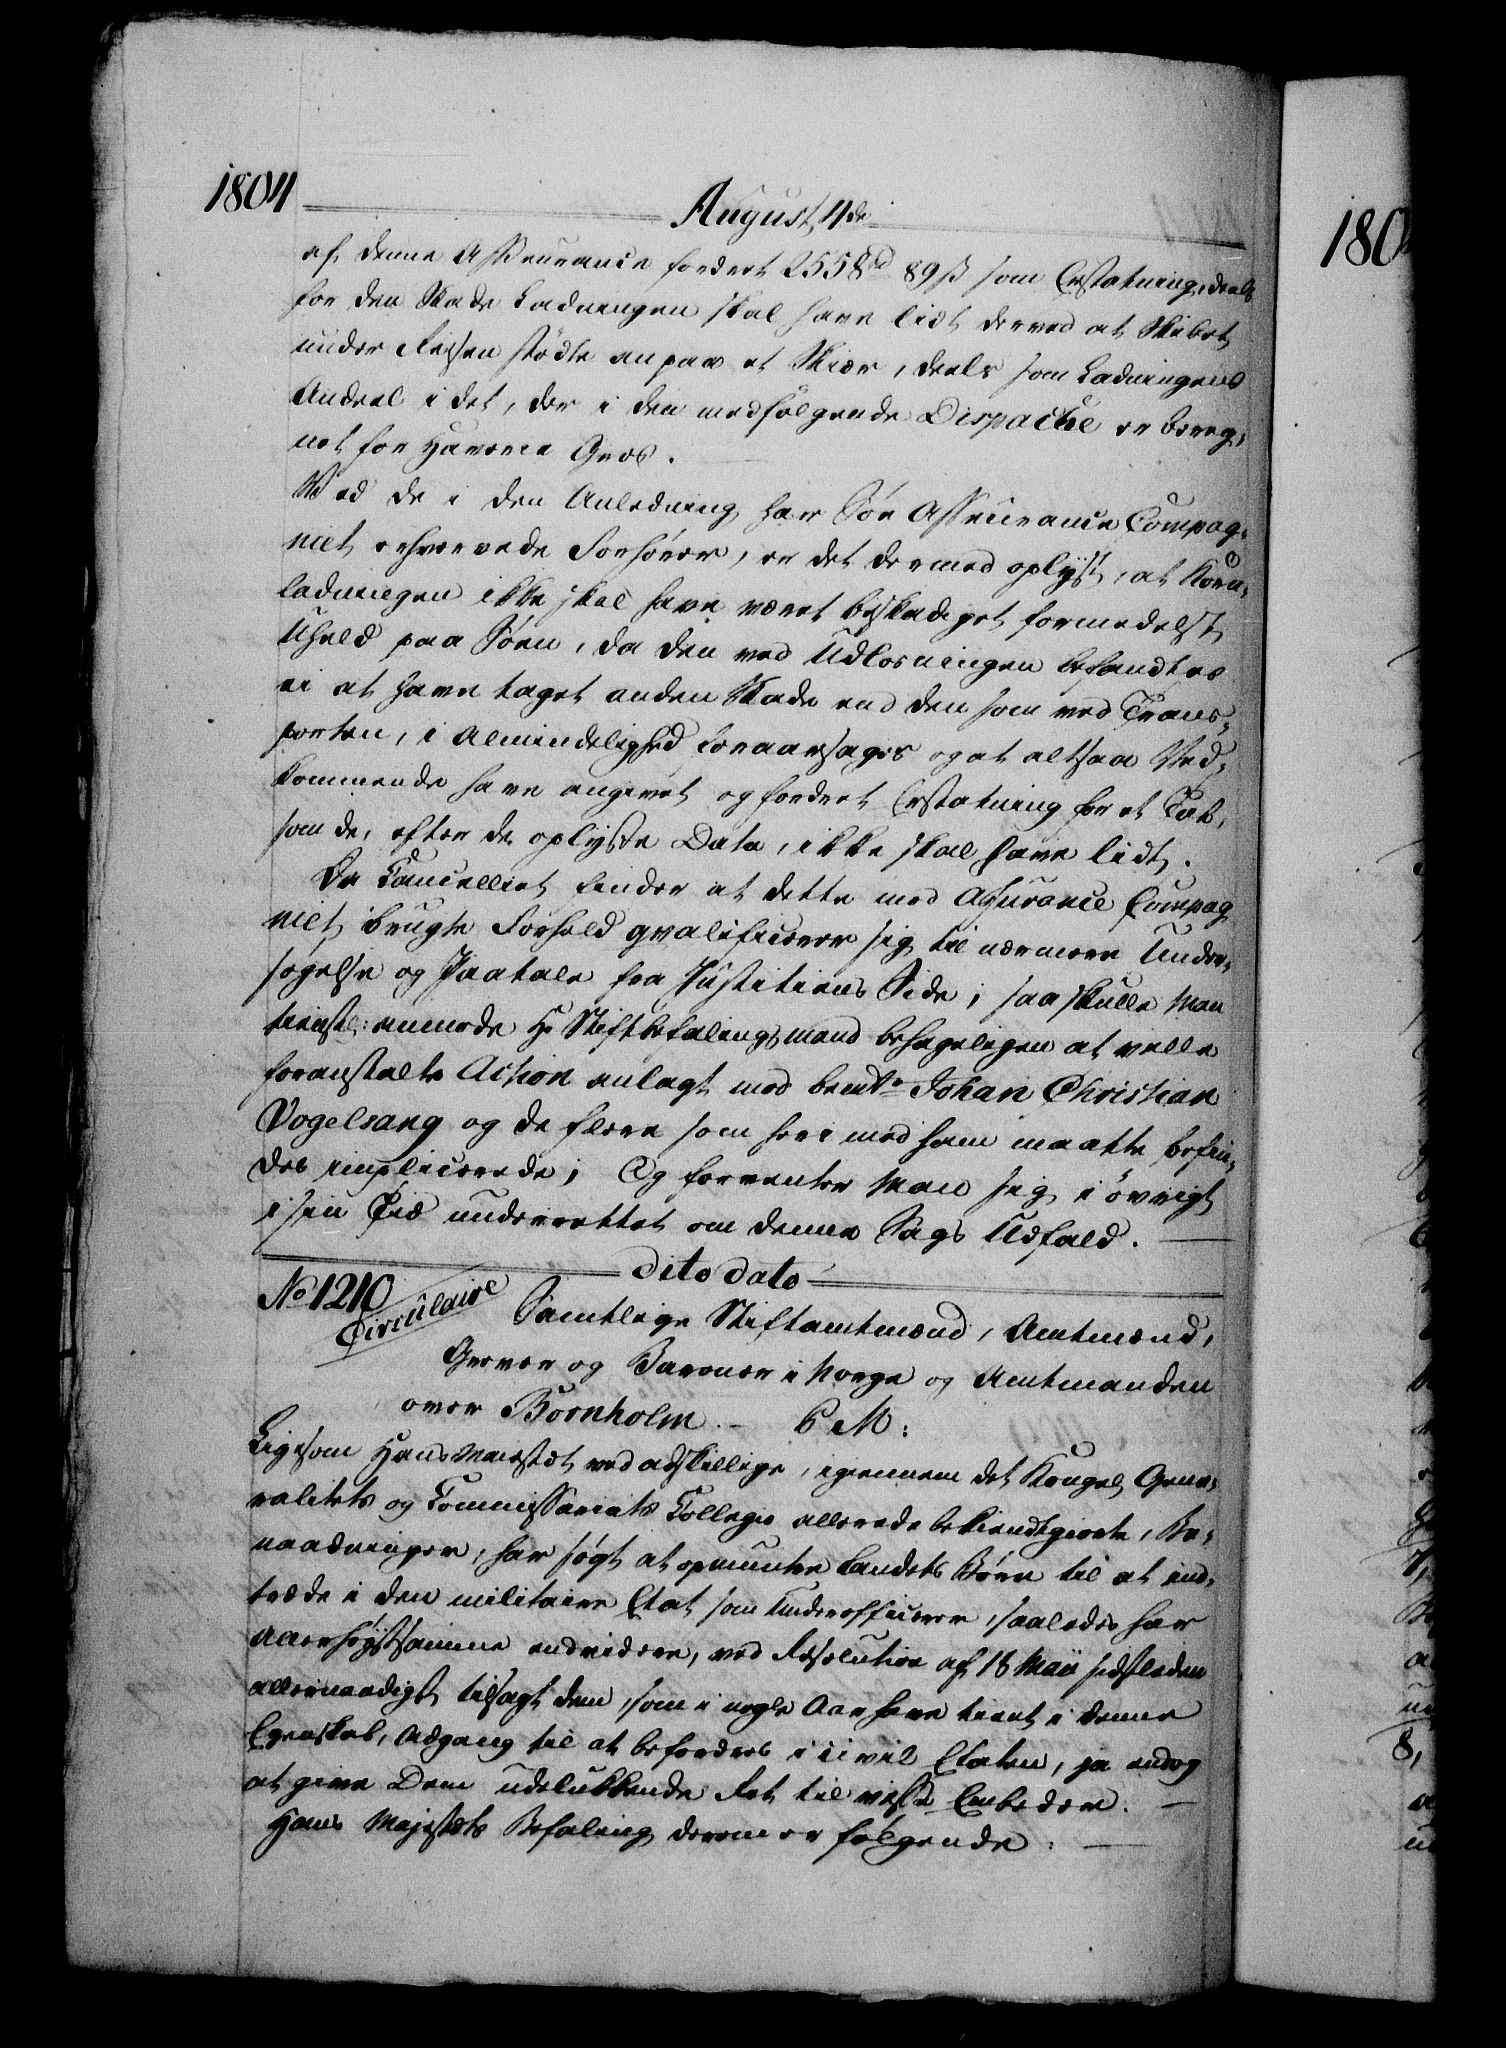 1804
August 4de
af denne Asseurance fordret 2558rd 89 s som Erstatning, deels
for den Skade Ladningen skal have lidt derved at Skibet
under Reisen stødte an paa et Skiær, deels som Ladningens
Andeel i det, der i den medfølgende Dispache er bereg-
net for Haverie Gros.
Ved de i den Anledning har Søe Assurance Compag-
niet erhvervede Forhører, er det dermed oplyst, at Korn-
ladningen ikke skal have været beskadiget formedelst
Uheld paa Søen, da den ved Udlosningen befandtes
ei at have taget anden Skade end den som ved Trans-
porten, i Almindelighed foraarsages og at altsaa Ved-
kommende have angivet og fordret Erstatning for et Tab,
som de, efter de oplyste Data, ikke skal have lidt.
Da Cancelliet finder at dette mod Assurance Compag
niet brugte Forhold qvalificerer sig til nærmere Under-
søgelse og Paatale fra Justitiens Side; saa skulle Man
tienstl: anmode Hr Stiftbefalingsmand behageligen at ville
foranstalte Action anlagt mod bemte Johan Christian
Vogelsang og de flere som heri med ham maatte befin-
des implicerede; Og forventer Man sig i øvrigt
i sin Tid underrettet om denne Sags Udfald.
dito dato
No 1210
Circulaire
Samtlige Stiftamtmænd, Amtmænd,
Grever og Baroner i Norge og Amtmanden
over Bornholm. P M:
Ligesom Hans Maiestæt ved adskillige, igiennem det Kongel Gene-
ralitets og Commissariats Collegie allerede bekiendtgiorte, Be-
naadninger, har søgt at opmuntre Landets Børn til at ind-
træde i den militaire Etat som Underofficerer, saaledes har
Allerhøistsamme endvidere, ved Resolution af 18 Maii sidstleden
allernaadigst tilsagt dem, som i nogle Aar have tient i denne
Egenskab, Adgang til at befordres i civil Etaten, ja endog
at give Dem udelukkende Ret til visse Embeder.
Hans Majestæts Befaling derom er følgende:
180
8,